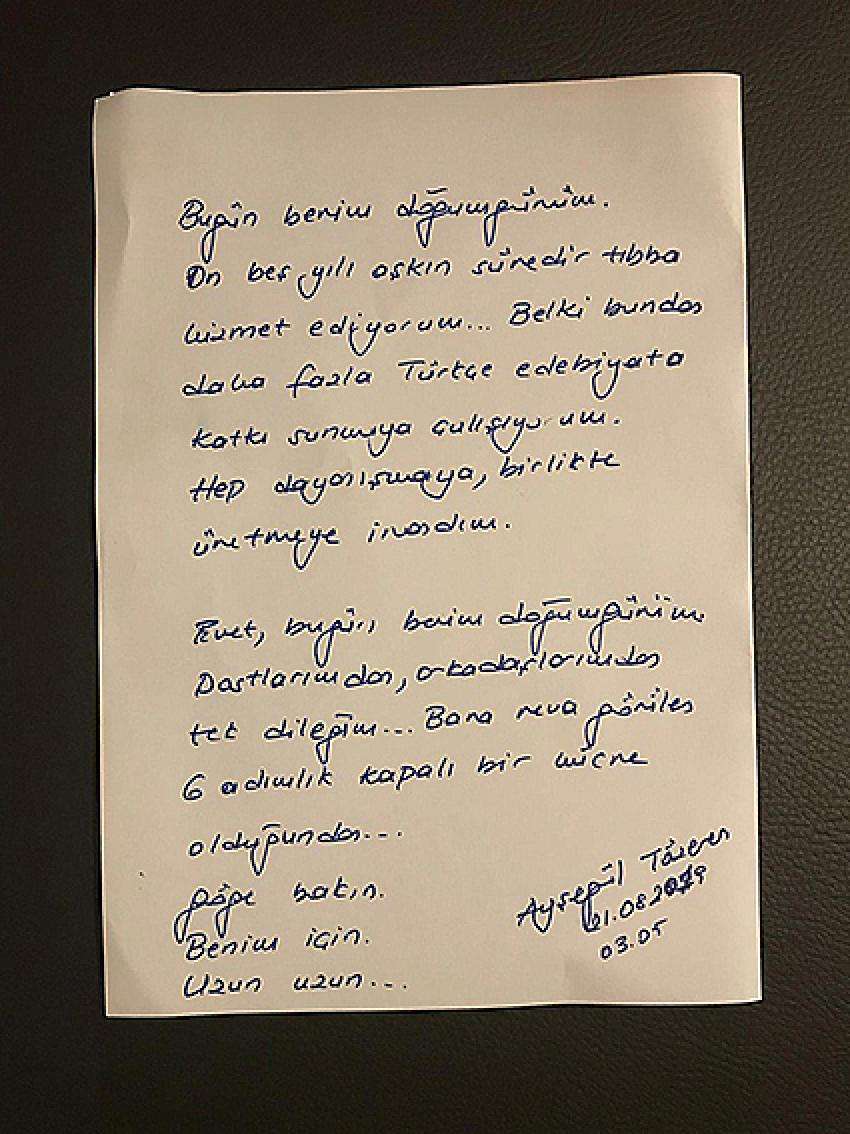 Bugün benim doğumgünüm.
On beş yılı aşkın süredir tıbba
hizmet ediyorum... Belki bundan
daha fazla Türkçe edebiyata
katkı sunmaya çalışıyorum.
Hep dayanışmaya, birlikte
üretmeye inandım.
Evet, bugün benim doğumgünüm.
Dostlarımdan, arkadaşlarımdan
tek dileğim... Bana reva görülen
6 adımlık kapalı bir hücre
olduğundan...
göğe bakın.
Benim için.
Uzun uzun...
Ayşegül Tözeren
01.08.2019
03.05